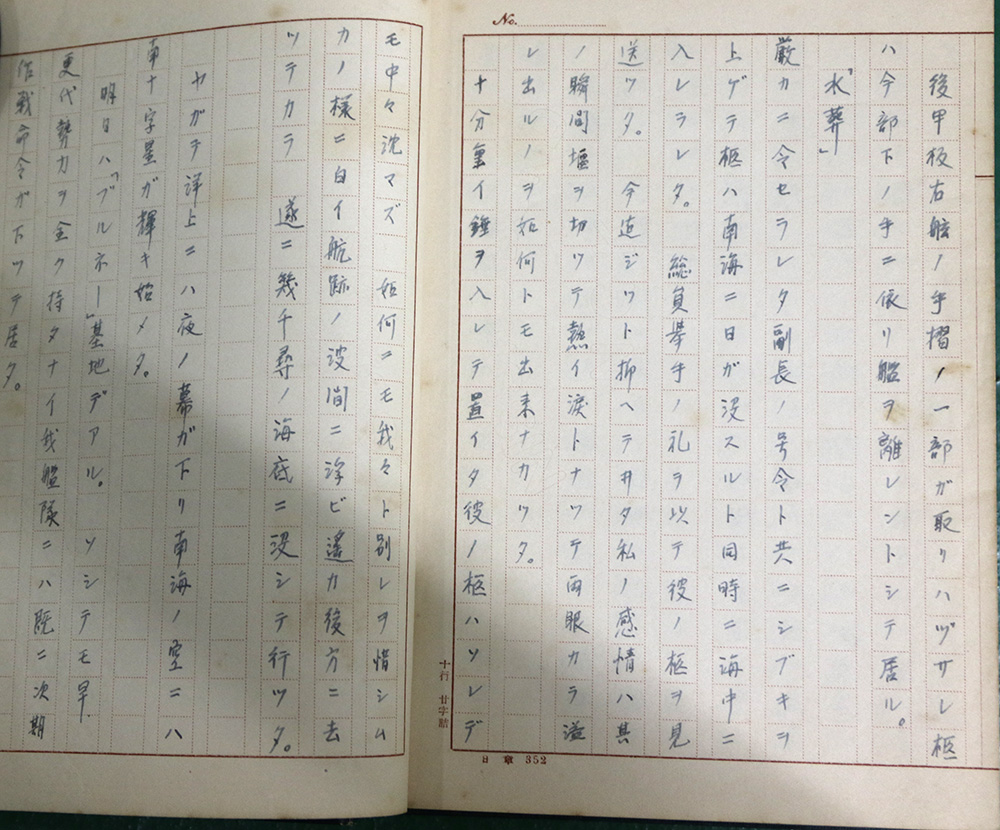 No.
後甲板右舷ノ手摺ノ一部ガ取リハヅサレ柩
ハ今部下ノ手ニ依リ艦ヲ離レントシテ居ル。
「水葬」
厳カニ令セラレタ副長ノ号令ト共ニシブキヲ
上ゲテ柩ハ南海ニ日ガ没スルト同時ニ海中ニ
入レラレタ。総員挙手ノ礼ヲ以テ彼ノ柩ヲ見
送ツタ。 今迄ジツト抑ヘテ井タ私ノ感情ハ其
ノ瞬間堰ヲ切ツテ熱イ涙トナツテ両眼カラ溢
レ出ルノヲ如何トモ出来ナカツタ。
十分重イ錘ヲ入レテ置イタ彼ノ柩ハソレデ
十行 廿字詰
日章 352
モ中々沈マズ 如何ニモ我々ト別レヲ惜シム
カノ様ニ白イ航跡ノ波間ニ浮ビ遙カ後方ニ去
ツテカラ 遂ニ幾千尋ノ海底ニ没シテ行ツタ。
ヤガテ洋上ニハ夜ノ幕ガ下リ南海ノ空ニハ
南十字星ガ輝キ始メタ。
明日ハ「ブルネー」基地デアル。 ソシテモ早
更代勢力ヲ全ク持タナイ我艦隊ニハ既ニ次期
作戦命令ガ下ツテ居タ。